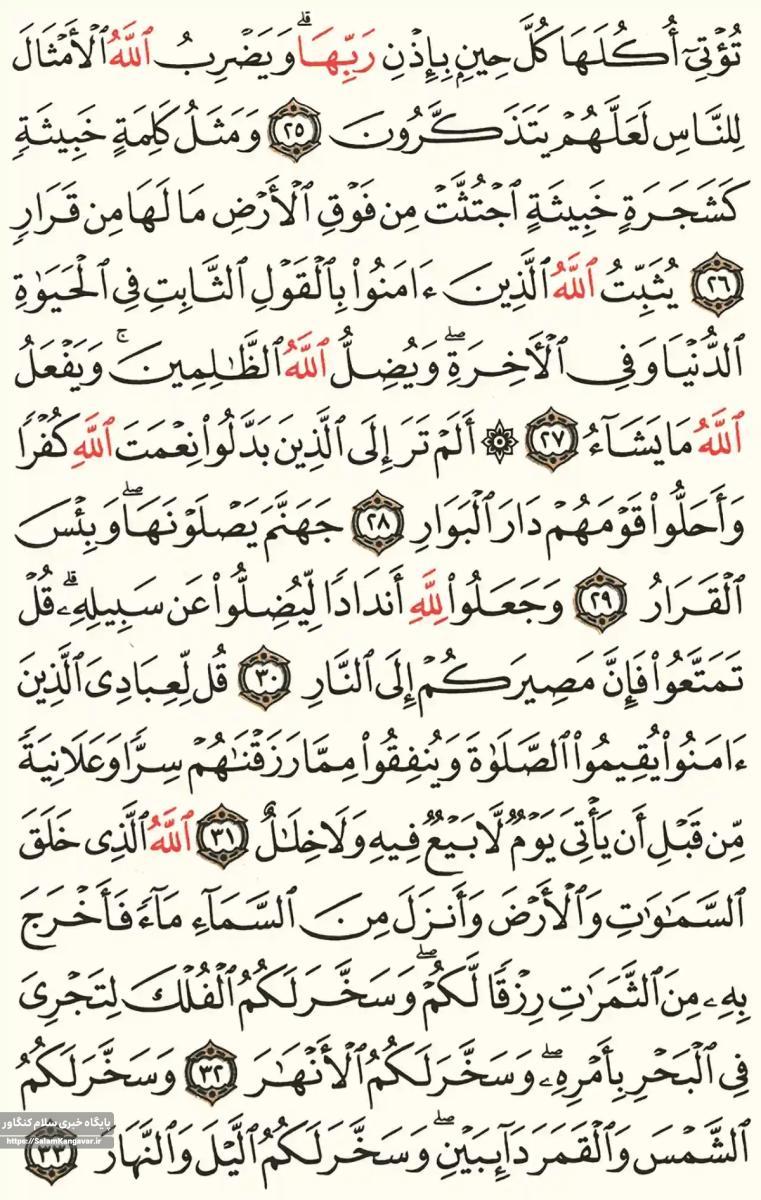 تُؤْتِىٓ أُكُلَهَا كُلَّ حِينٍۭ بِإِذْنِ رَبِّهَا ۗ وَيَضْرِبُ ٱللَّهُ ٱلْأَمْثَالَ
لِلنَّاسِ لَعَلَّهُمْ يَتَذَكَّرُونَ ٢٥ وَمَثَلُ كَلِمَةٍ خَبِيثَةٍ
كَشَجَرَةٍ خَبِيثَةٍ ٱجْتُثَّتْ مِن فَوْقِ ٱلْأَرْضِ مَا لَهَا مِن قَرَارٍ
٢٦ يُثَبِّتُ ٱللَّهُ ٱلَّذِينَ ءَامَنُوا۟ بِٱلْقَوْلِ ٱلثَّابِتِ فِى ٱلْحَيَوٰةِ
ٱلدُّنْيَا وَفِى ٱلْـَٔاخِرَةِ ۖ وَيُضِلُّ ٱللَّهُ ٱلظَّـٰلِمِينَ ۚ وَيَفْعَلُ
ٱللَّهُ مَا يَشَآءُ ٢٧ ۞ أَلَمْ تَرَ إِلَى ٱلَّذِينَ بَدَّلُوا۟ نِعْمَتَ ٱللَّهِ كُفْرًا
وَأَحَلُّوا۟ قَوْمَهُمْ دَارَ ٱلْبَوَارِ ٢٨ جَهَنَّمَ يَصْلَوْنَهَا ۖ وَبِئْسَ
ٱلْقَرَارُ ٢٩ وَجَعَلُوا۟ لِلَّهِ أَندَادًا لِّيُضِلُّوا۟ عَن سَبِيلِهِۦ ۗ قُلْ
تَمَتَّعُوا۟ فَإِنَّ مَصِيرَكُمْ إِلَى ٱلنَّارِ ٣٠ قُل لِّعِبَادِىَ ٱلَّذِينَ
ءَامَنُوا۟ يُقِيمُوا۟ ٱلصَّلَوٰةَ وَيُنفِقُوا۟ مِمَّا رَزَقْنَـٰهُمْ سِرًّا وَعَلَانِيَةً
مِّن قَبْلِ أَن يَأْتِىَ يَوْمٌ لَّا بَيْعٌ فِيهِ وَلَا خِلَـٰلٌ ٣١ ٱللَّهُ ٱلَّذِى خَلَقَ
ٱلسَّمَـٰوَٰتِ وَٱلْأَرْضَ وَأَنزَلَ مِنَ ٱلسَّمَآءِ مَآءً فَأَخْرَجَ
بِهِۦ مِنَ ٱلثَّمَرَٰتِ رِزْقًا لَّكُمْ ۖ وَسَخَّرَ لَكُمُ ٱلْفُلْكَ لِتَجْرِىَ
فِى ٱلْبَحْرِ بِأَمْرِهِۦ ۖ وَسَخَّرَ لَكُمُ ٱلْأَنْهَـٰرَ ٣٢ وَسَخَّرَ لَكُمُ
ٱلشَّمْسَ وَٱلْقَمَرَ دَآئِبَيْنِ ۖ وَسَخَّرَ لَكُمُ ٱلَّيْلَ وَٱلنَّهَارَ ٣٣
پایگاه خبری سلام کنگاور
https://SalamKangavar.ir